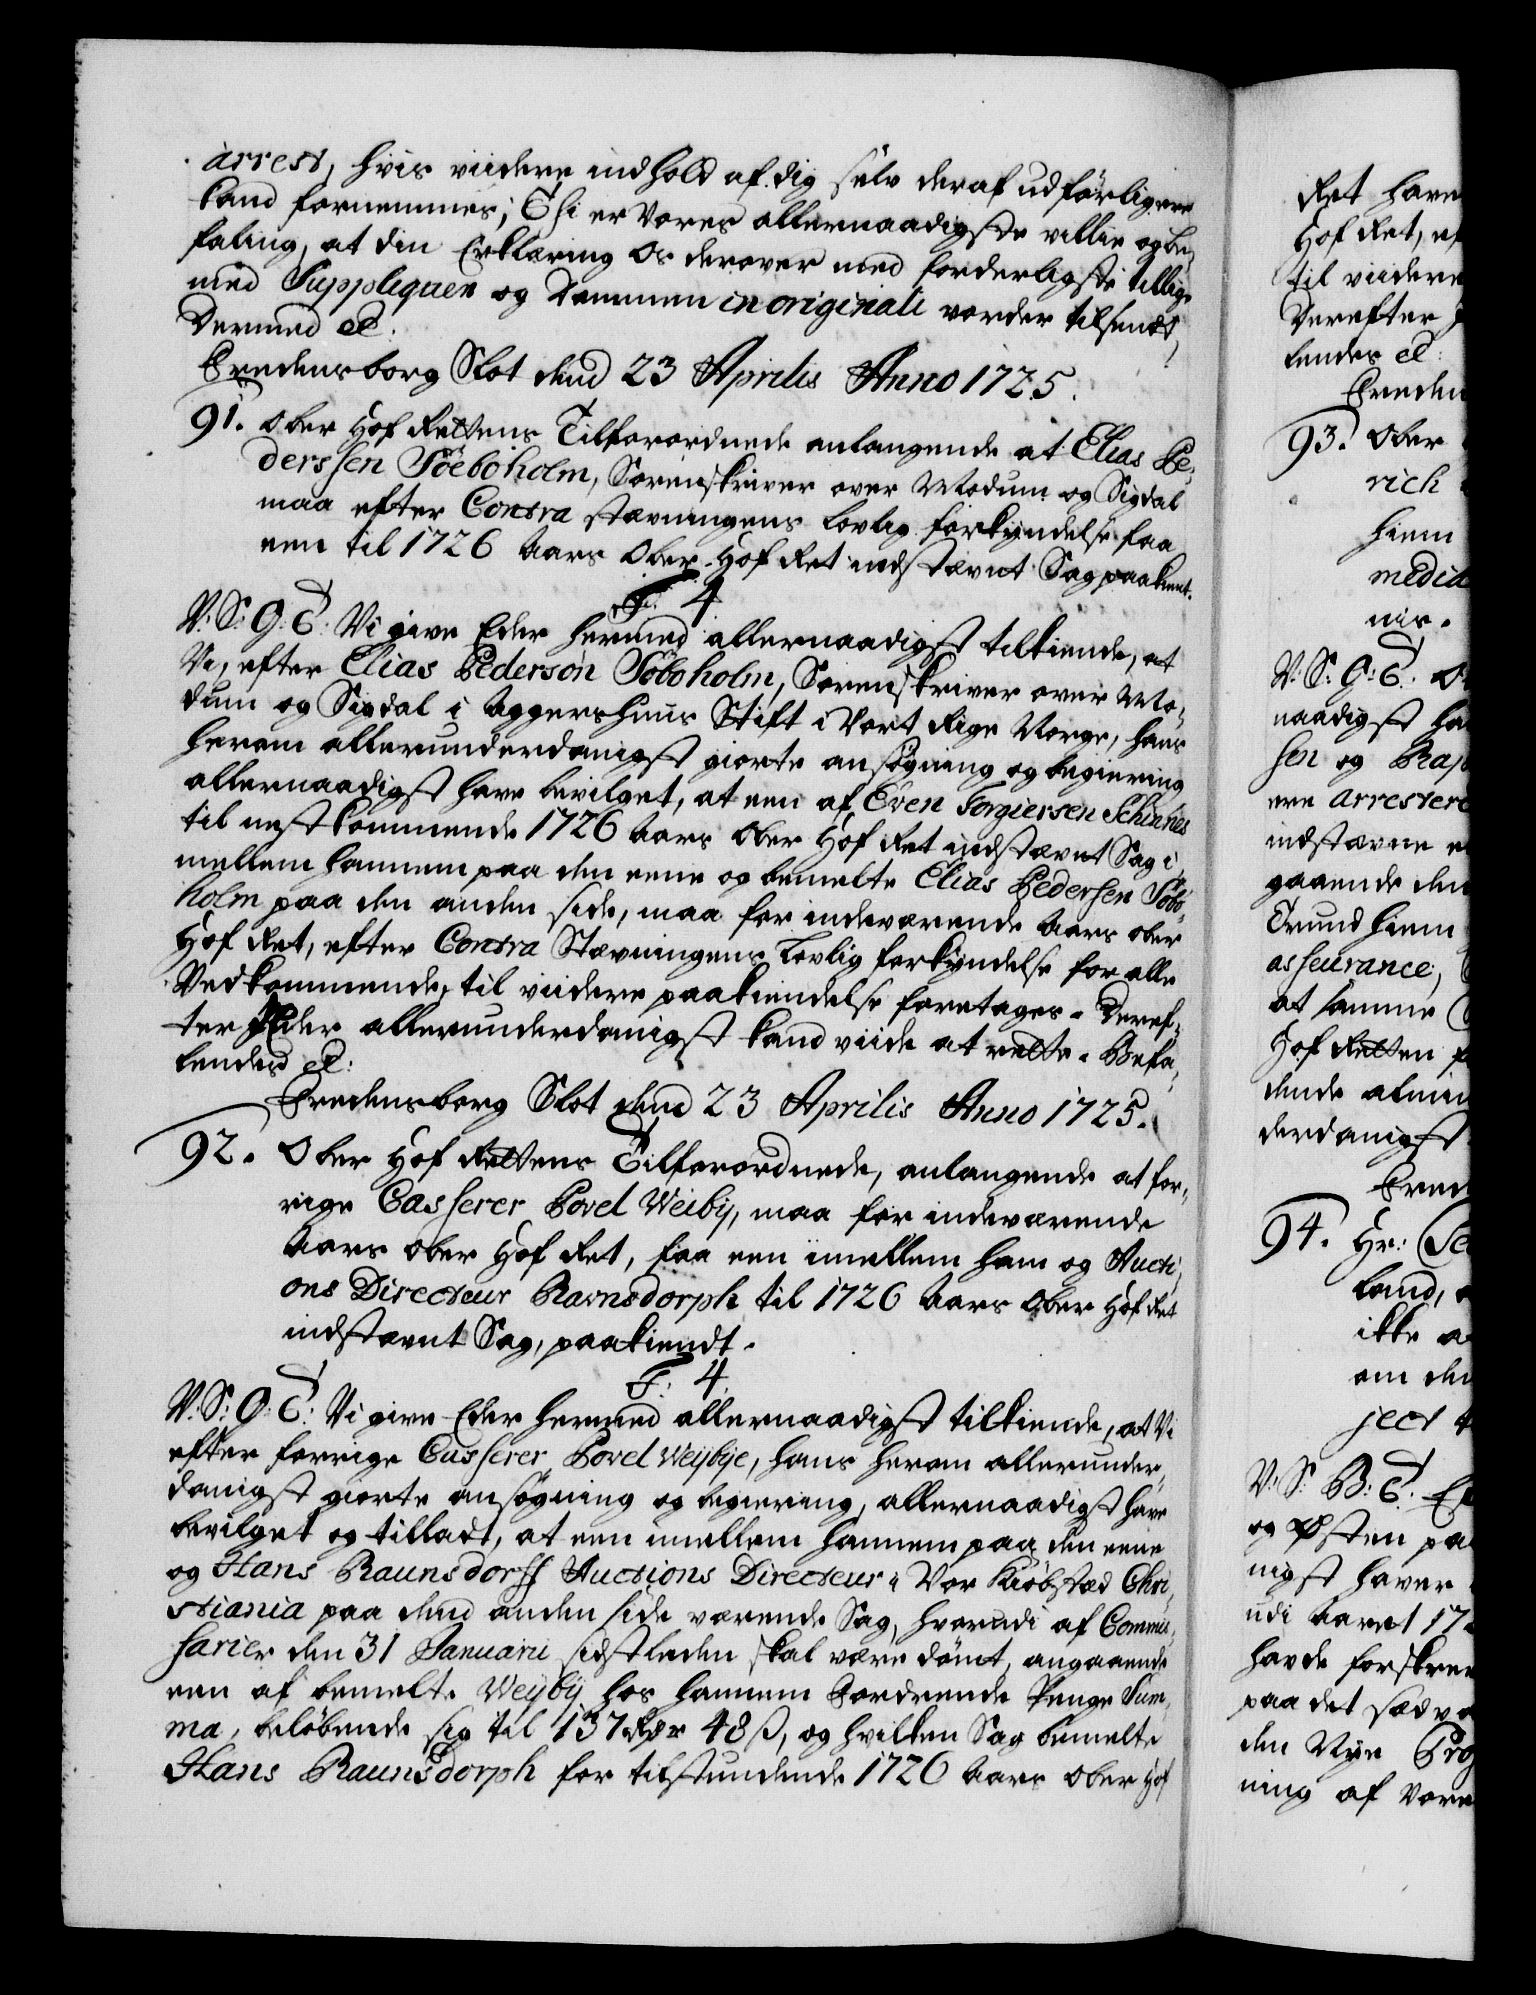 arrest, hvis viidere indhold af dig sielv deraf udførligere
kand fornemmes; Thi er Vores allernaadigste villie og be-
faling, at din Erklæring os derover med forderligste tillige
med Suppliquen og Dommen in originali vorder tilsendt,
Dermed etc.
Fredensborg Slot dend 23 Aprilis Anno 1725.
91. Ober Hof Rettens Tilforordnede anlangende at Elias Pe-
derssen Söeboholm, Sorenskriver over Modum og Sigdal
maa efter Contra stævningens lovlig forkyndelse faa
een til 1726 Aars Ober-Hof Ret indstævnt Sag paakient.
F: 4
V: S: G: T: Vi give Eder hermed allernaadigst tilkiende, at
Vi, efter Elias Pederson Söboholm, Sorenskriver over Mo-
dum og Sigdal i Aggershuus Stift i Vort Rige Norge, hans
herom allerunderdanigst giorte ansøgning og begiering
allernaadigst have bevilget, at een af Even Torgiersen Schinnes
til nestkommende 1726 Aars Ober Hof Ret indstævnt Sag i-
mellem hannem paa den eene og bemelte Elias Pedersen Söbo-
holm paa den anden side, maa for indeværende Aars ober
Hof Ret, efter Contra Stævningens lovlig forkyndelse for alle
Vedkommende, til viidere paakiendelse foretages. Deref-
ter I Eder allerunderdanigst kand viide at rette. Befa-
lendes etc:
Fredensborg Slot dend 23 Aprilis Anno 1725.
92. Ober Hof Rettens Tilforordnede, anlangende at for-
rige Casserer Povel Weiby, maa for indeværende
Aars ober Hof Ret, faa een imellem ham og Aucti-
ons Directeur Ravnsdorph til 1726 Aars Ober Hof Ret
indstævnt Sag, paakiendt.
F: 4
V: S: G: T: Vi give Eder hermed allernaadigst tilkiende, at Vi
efter forrige Casserer Povel Weybye, hans herom allerunder-
danigst giorte ansøgning og begiering, allernaadigst have
bevilget og tilladt, at een imellem hannem paa den eene
og Hans Raunsdorff Auctions Directeur i Vor Kiøbstæd Chri-
stiania paa dend anden side værende Sag, hvorudi af Commis-
sarier den 31 Januarii sidstleden skal være dömt, angaaende
een af bemelte Weyby hos hannem Fordrende Penge Sum-
ma, beløbende sig til 137 Rdr 48 ß, og hvilken Sag bemelte
Hans Raunsdorph for tilstundende 1726 Aars Ober Hof
Ret have
Hof Ret, ef
til viidere
Derefter
lendes etc:
Freden
93. Ober
rich
hiem
media
nir.
V: S: G: T:
naadigst ha
sen og Rap
ere arrestere
indstævne e
gaaende den
Trund hiem
asseurance,
at samme
Hof Retten f
dende almin
derdanigst
Fred
94. Hr:
land,
ikke a
om den
ject
V: S: B: T:
og Østen pa
nigst haver
udi Aaret 17
havde forskrev
paa det sædva
den Nye Prog
ning af Vore